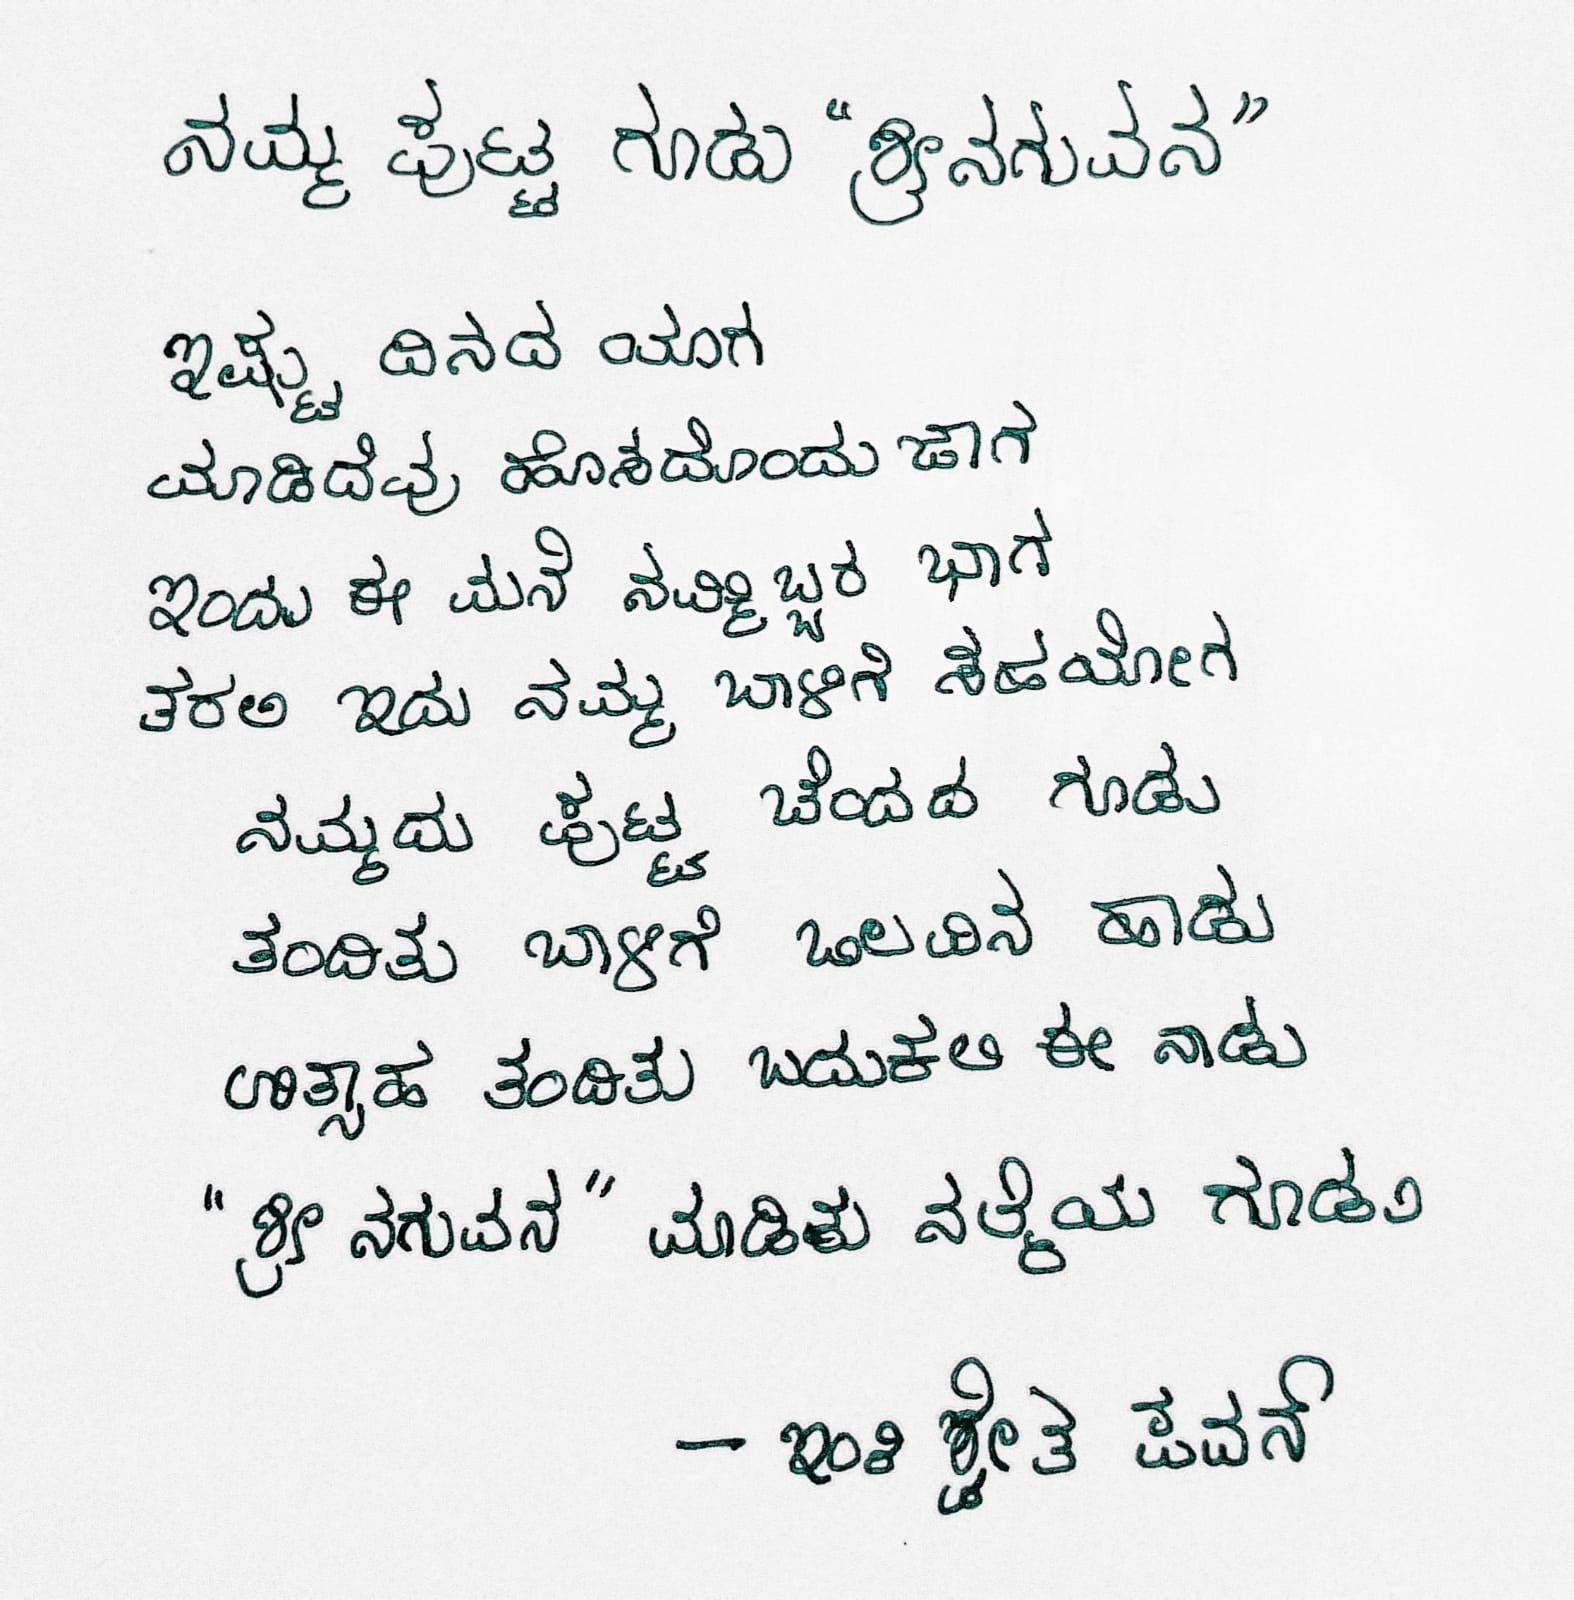 ನಮ್ಮ ಪುಟ್ಟ ಗೂಡು “ಶ್ರೀನಗುವನ”
ಇಷ್ಟು ದಿನದ ಯಾಗ
ಮಾಡಿದೆವು ಹೊಸದೊಂದು ಜಾಗ
ಇಂದು ಈ ಮನೆ ನಮ್ಮಿಬ್ಬರ ಭಾಗ
ತರಲಿ ಇದು ನಮ್ಮ ಬಾಳಿಗೆ ಸಹಯೋಗ
ನಮ್ಮದು ಪುಟ್ಟ ಚೆಂದದ ಗೂಡು
ತಂದಿತು ಬಾಳಿಗೆ ಒಲವಿನ ಹಾಡು
ಉತ್ಸಾಹ ತಂದಿತು ಬದುಕಲಿ ಈ ನಾಡು
“ಶ್ರೀ ನಗುವನ” ಮಾಡಿತು ನಲ್ಮೆಯ ಗೂಡು
- ಇಂತಿ ಶ್ವೇತ ಪವನ್